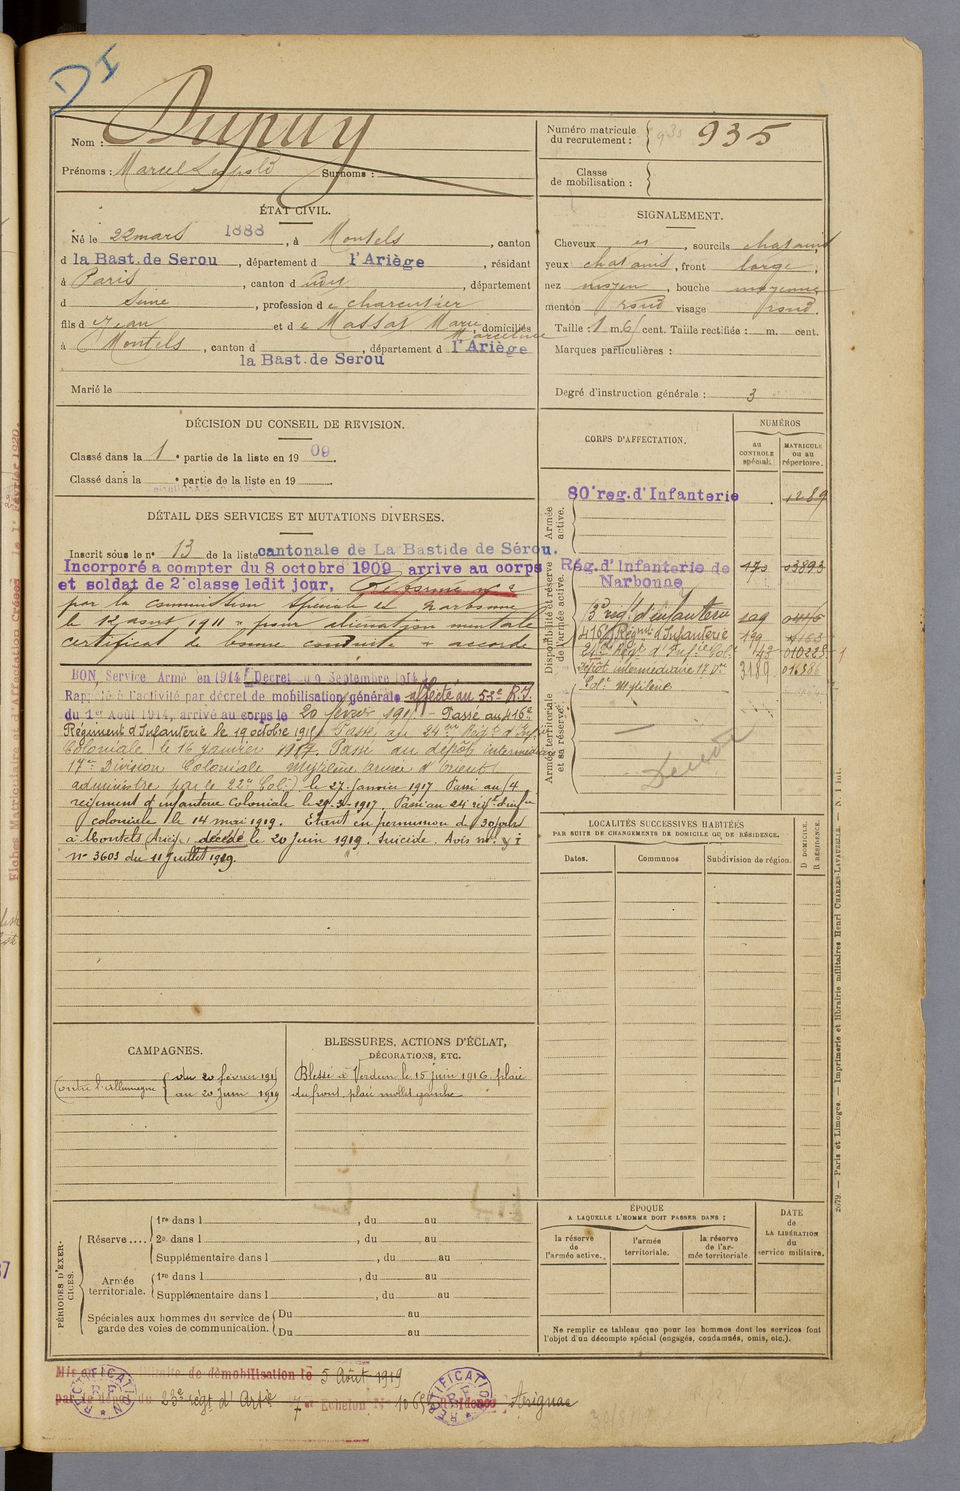 DI
Nom : Dupuy
Prénoms : Marcel Léopold Surnoms :
Numéro matricule du recrutement : 935
Classe de mobilisation :
ÉTAT CIVIL.
Né le 22 mars 1888, à Montels, canton
d la Bast. de Serou, département d l'Ariège, résidant
à Paris, canton d dudit, département
d Seine, profession d e charcutier
fils d e Jean et d e Massat Marie Marceline domiciliés
à Montels, canton d la Bast. de Serou, département d l'Ariège
Marié le
SIGNALEMENT.
Cheveux et, sourcils chatains
yeux chatains, front large,
nez moyen, bouche moyenne
menton rond visage rond.
Taille : 1 m. 61 cent. Taille rectifiée : m. cent.
Marques particulières :
Degré d'instruction générale : 3
DÉCISION DU CONSEIL DE REVISION.
Classé dans la 1e partie de la liste en 1909.
Classé dans la e partie de la liste en 19 .
DÉTAIL DES SERVICES ET MUTATIONS DIVERSES.
Inscrit sous le n° 13 de la liste cantonale de La Bastide de Sérou.
Incorporé a compter du 8 octobre 1909 arrive au corps
et soldat de 2e classe ledit jour, Réformé n° 2
par la commission spéciale de Narbonne
le 12 août 1911 pour aliénation mentale
certificat de bonne conduite accordé
BON Service Armé en 1914 Décret du 9 Septembre 1914
Rappelé à l'activité par décret de mobilisation générale affecté au 53e R.I.
du 1er Août 1914, arrivé au corps le 20 février 1915 - Passé au 416e
Régiment d'Infanterie le 19 octobre 1915 Passé au 24me Rég. d'Infie
Coloniale le 16 janvier 1917. Passé au dépôt intermédiaire
17me Division Coloniale Mytilène Armée d'Orient
administré par le 22e Col.) le 27 janvier 1917 Passé au 4
régiment d'infanterie Coloniale le 29.3.1917. Passé au 24 rég d'infie
coloniale le 14 mai 1919. Étant en permission de 30 jours
à Montels (Ariège) décédé le 20 juin 1919. Suicide. Avis m.
n° 3603 du 11 juillet 1919.
CORPS D'AFFECTATION.
NUMÉROS
au CONTROLE spécial.
MATRICULE ou au répertoire.
Armée active.
80e reg. d'Infanterie 1289
Disponibilité et réserve de l'armée active.
Rég. d'Infanterie de Narbonne 173 03893
53e rég d'infanterie
416e Régmt d'Infanterie 199
24me Régt d'Infie Cole 43 010225
Dépôt intermédiaire 17 Don Cole Mytilène 3189
Armée territoriale et sa réserve.
LOCALITÉS SUCCESSIVES HABITÉES
PAR SUITE DE CHANGEMENTS DE DOMICILE OU DE RÉSIDENCE.
Dates. Communes Subdivision de région. D DOMICILE. R RÉSIDENCE.
CAMPAGNES.
Contre l'Allemagne du 20 février 1915
au 20 juin 1919
BLESSURES, ACTIONS D'ÉCLAT,
DÉCORATIONS, ETC.
Blessé à Verdun le 15 juin 1916. plaie
du front, plaie mollet gauche
PÉRIODES D'EXERCICES.
Réserve .... 1re dans l , du au
2e dans l , du au
Supplémentaire dans l , du au
Armée territoriale. 1re dans l , du au
Supplémentaire dans l , du au
Spéciales aux hommes du service de garde des voies de communication. Du au
Du au
ÉPOQUE
A LAQUELLE L'HOMME DOIT PASSER DANS :
la réserve de l'armée active.
l'armée territoriale.
la réserve de l'armée territoriale.
DATE de LA LIBÉRATION du service militaire.
Ne remplir ce tableau que pour les hommes dont les services font
l'objet d'un décompte spécial (engagés, condamnés, omis, etc.).
de démobilisation le 5 Août 1919
23e régt d'Artie 7 Echelon N°
RECTIFICATION R.F.
RECTIFICATION R.F.
2079. — Paris et Limoges. — Imprimerie et librairie militaires Henri CHARLES-LAVAUZELLE.